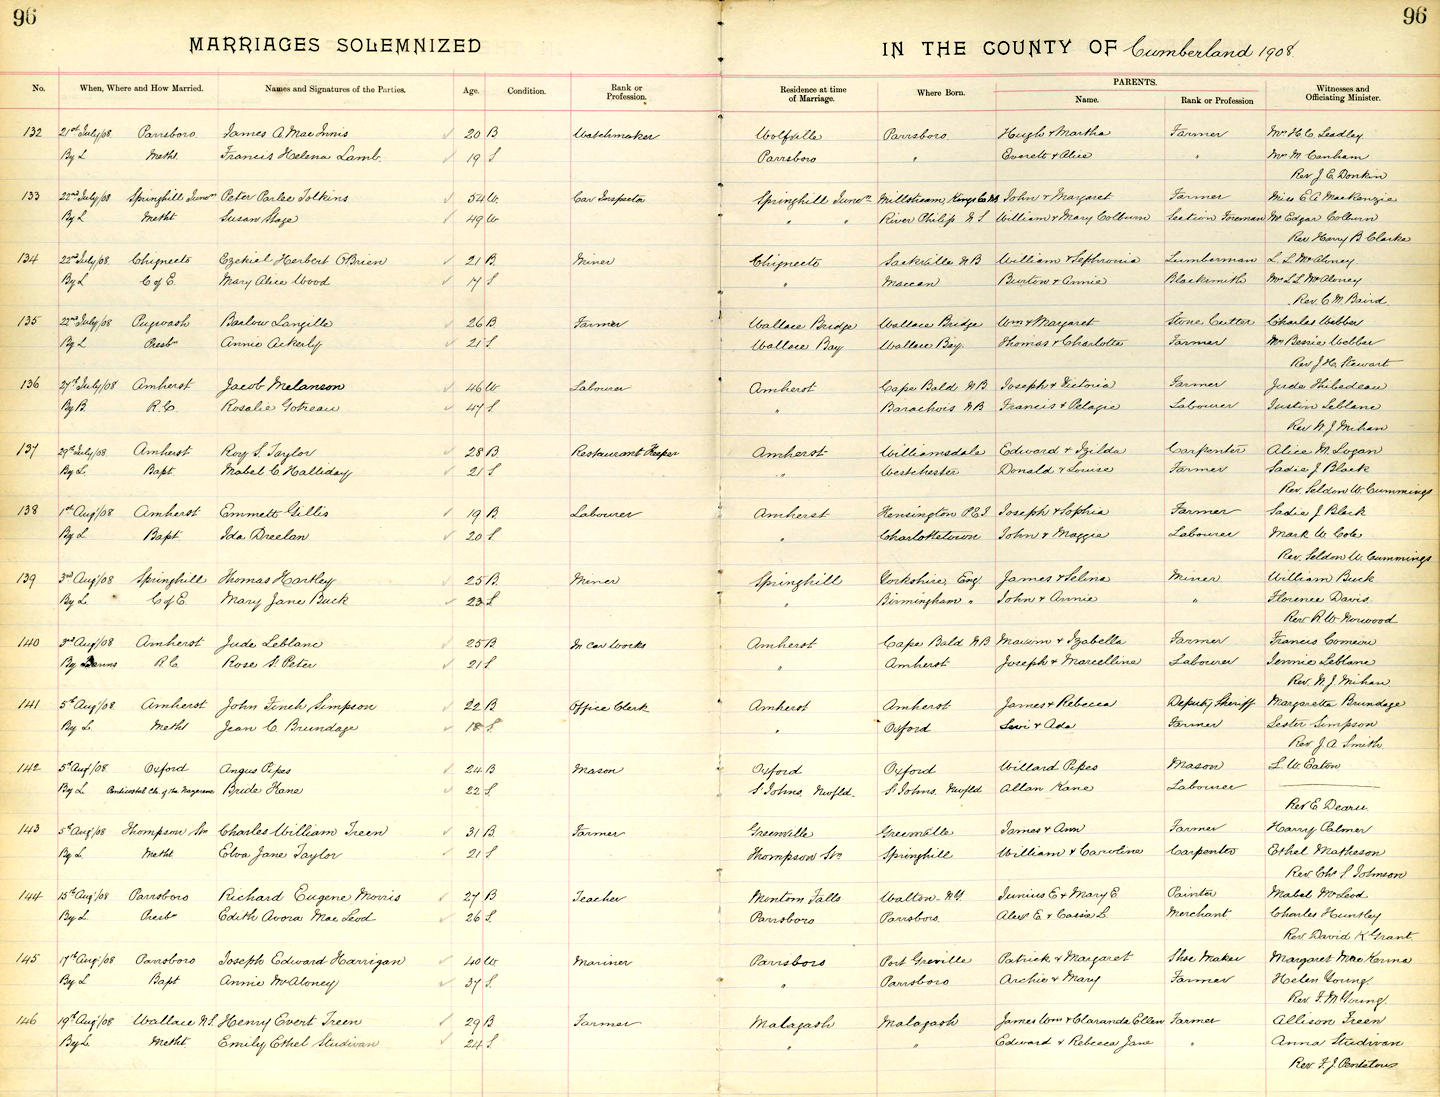 96
96
MARRIAGES SOLEMNIZED
IN THE COUNTY OF Cumberland 1908
No. When, Where and How Married. Names and Signatures of the Parties. Age. Condition. Rank or Profession. Residence at time of Marriage. Where Born. PARENTS. Name. Rank or Profession Witnesses and Officiating Minister.
132 21st July/08 Parrsboro James A MacInnis 20 B Watchmaker Wolfville Parrsboro Hugh & Martha Farmer Mrs H. C. Leadley
By L Meth. Francis Helena Lamb 19 S Parrsboro " Everett & Alice " Mrs M. Canham
Rev J. E. Donkin
133 22nd July/08 Springhill Juncn Peter Parlee Tolkins 54 W. Car Inspector Springhill Juncn Millstream, Kings Co NB John & Margaret Farmer Miss E A MacKenzie
By L Metht Susan Slage 49 W " " River Philip N S William & Mary Colburn Section Foreman Mr Edgar Colburn
Rev Harry B Clarke
134 22nd July/08 Chignecto Ezekial Herbert O'Brien 21 B. Miner Chignecto Sackville N B William & Sephronia Lumberman L. L. McAloney
By L C of E. Mary Alice Wood 17 S " Maccan Burton & Annie Blacksmith Mrs L L McAloney
Rev. C. M. Baird
135 22nd July/08 Pugwash Barlow Langille 26 B Farmer Wallace Bridge Wallace Bridge Wm & Margaret Stone Cutter Charles Webber
By L. Presbn Annie Ackerly 21 S Wallace Bay Wallace Bay Thomas & Charlotte Farmer Mrs Bessie Webber
Rev J. H. Stewart
136 27th July/08 Amherst Jacob Melanson 46 W Labourer Amherst Cape Bald N B Joseph & Victoria Farmer Jude Thibedeau
By B. R. C. Rosalie Gotreau 47 S " Barachois N B Francis & Pelagie Labourer Justin Leblanc
Rev N. J. Mihan
137 29th July/08 Amherst Roy S. Taylor 28 B Restaurant Keeper Amherst Williamsdale Edward & Izilda Carpenter Alice M. Logan
By L. Bapt. Mabel C Halliday 21 S " Westchester Donald & Louise Farmer Sadie J Black
Rev. Seldon W. Cummings
138 1st Aug/08 Amherst Emmett Gillis 19 B Labourer Amherst Kensington P.E.I Joseph & Sophia Farmer Sadie J Black
By L. Bapt Ida Dreelan 20 S " Charlottetown John & Maggie Labourer Mark W. Cole
Rev. Seldon W. Cummings
139 3rd Aug/08 Springhill Thomas Hartley 25 B. Miner Springhill Yorkshire, Eng James & Selina Miner William Buck
By L. C of E. Mary Jane Buck 23 S " Birmingham " John & Annie " Florence Davis
Rev R. W. Norwood
140 3rd Aug/08 Amherst Jude Leblanc 25 B In Car Works Amherst Cape Bald N B Maxim & Izabella Farmer Francis
By Banns R. C. Rose St Peter 21 S " Amherst Joseph & Marcelline Labourer Jennie Leblanc
Rev. N. J. Mihan
141 5th Aug/08 Amherst John Finch Simpson 22 B Office Clerk Amherst Amherst James & Rebecca Deputy Sheriff Margaretta Brundage
By L. Metht Jean C. Brundage 18 S " Oxford Levi & Ada Farmer Lester Simpson
Rev J. A. Smith
142 5th Aug/08 Oxford Angus Pipes 24 B Mason Oxford Oxford Willard Pipes Mason L. W. Eaton
By L Pentecostal Ch. of the Nazarene Bride Kane 22 S. St Johns. Newfld. St Johns. Newfld Allan Kane Labourer
Rev E
143 5th Aug/08 Thompson Stn Charles William Treen 31 B. Farmer Greenville Greenville James & Ann Farmer Harry Palmer
By L. Metht Elva Jane Taylor 21 S Thompson Stn Springhill William & Caroline Carpenter Ethel Matheson
Rev. Chs S Johnson
144 15th Aug/08 Parrsboro Richard Eugene Morris 27 B Teacher Falls Walton. N.Y. Junius E & Mary E Painter Mabel McLeod
By L. Presbn Edith Avora MacLeod 26 S Parrsboro Parrsboro. Alex E & Cassie L Merchant Charles Huntley
Rev. David K Grant
145 17th Aug/08 Parrsboro Joseph Edward Harrigan 40 W Mariner Parrsboro Port Greville Patrick & Margaret Shoe Maker Margaret MacKenna
By L Bapt Annie McAloney 37 S. " Parrsboro Archie & Mary Farmer Helen Young
Rev. F. M. Young.
146 19th Aug/08 Wallace N.S. Henry Evert Treen 29 B Farmer Malagash Malagash James Wm & Claranda Ellen Farmer Allison Treen
By L. Metht. Emily Ethel Studivan 24 S " " Edward & Rebecca Jane " Anna Studivan
Rev. F. J.